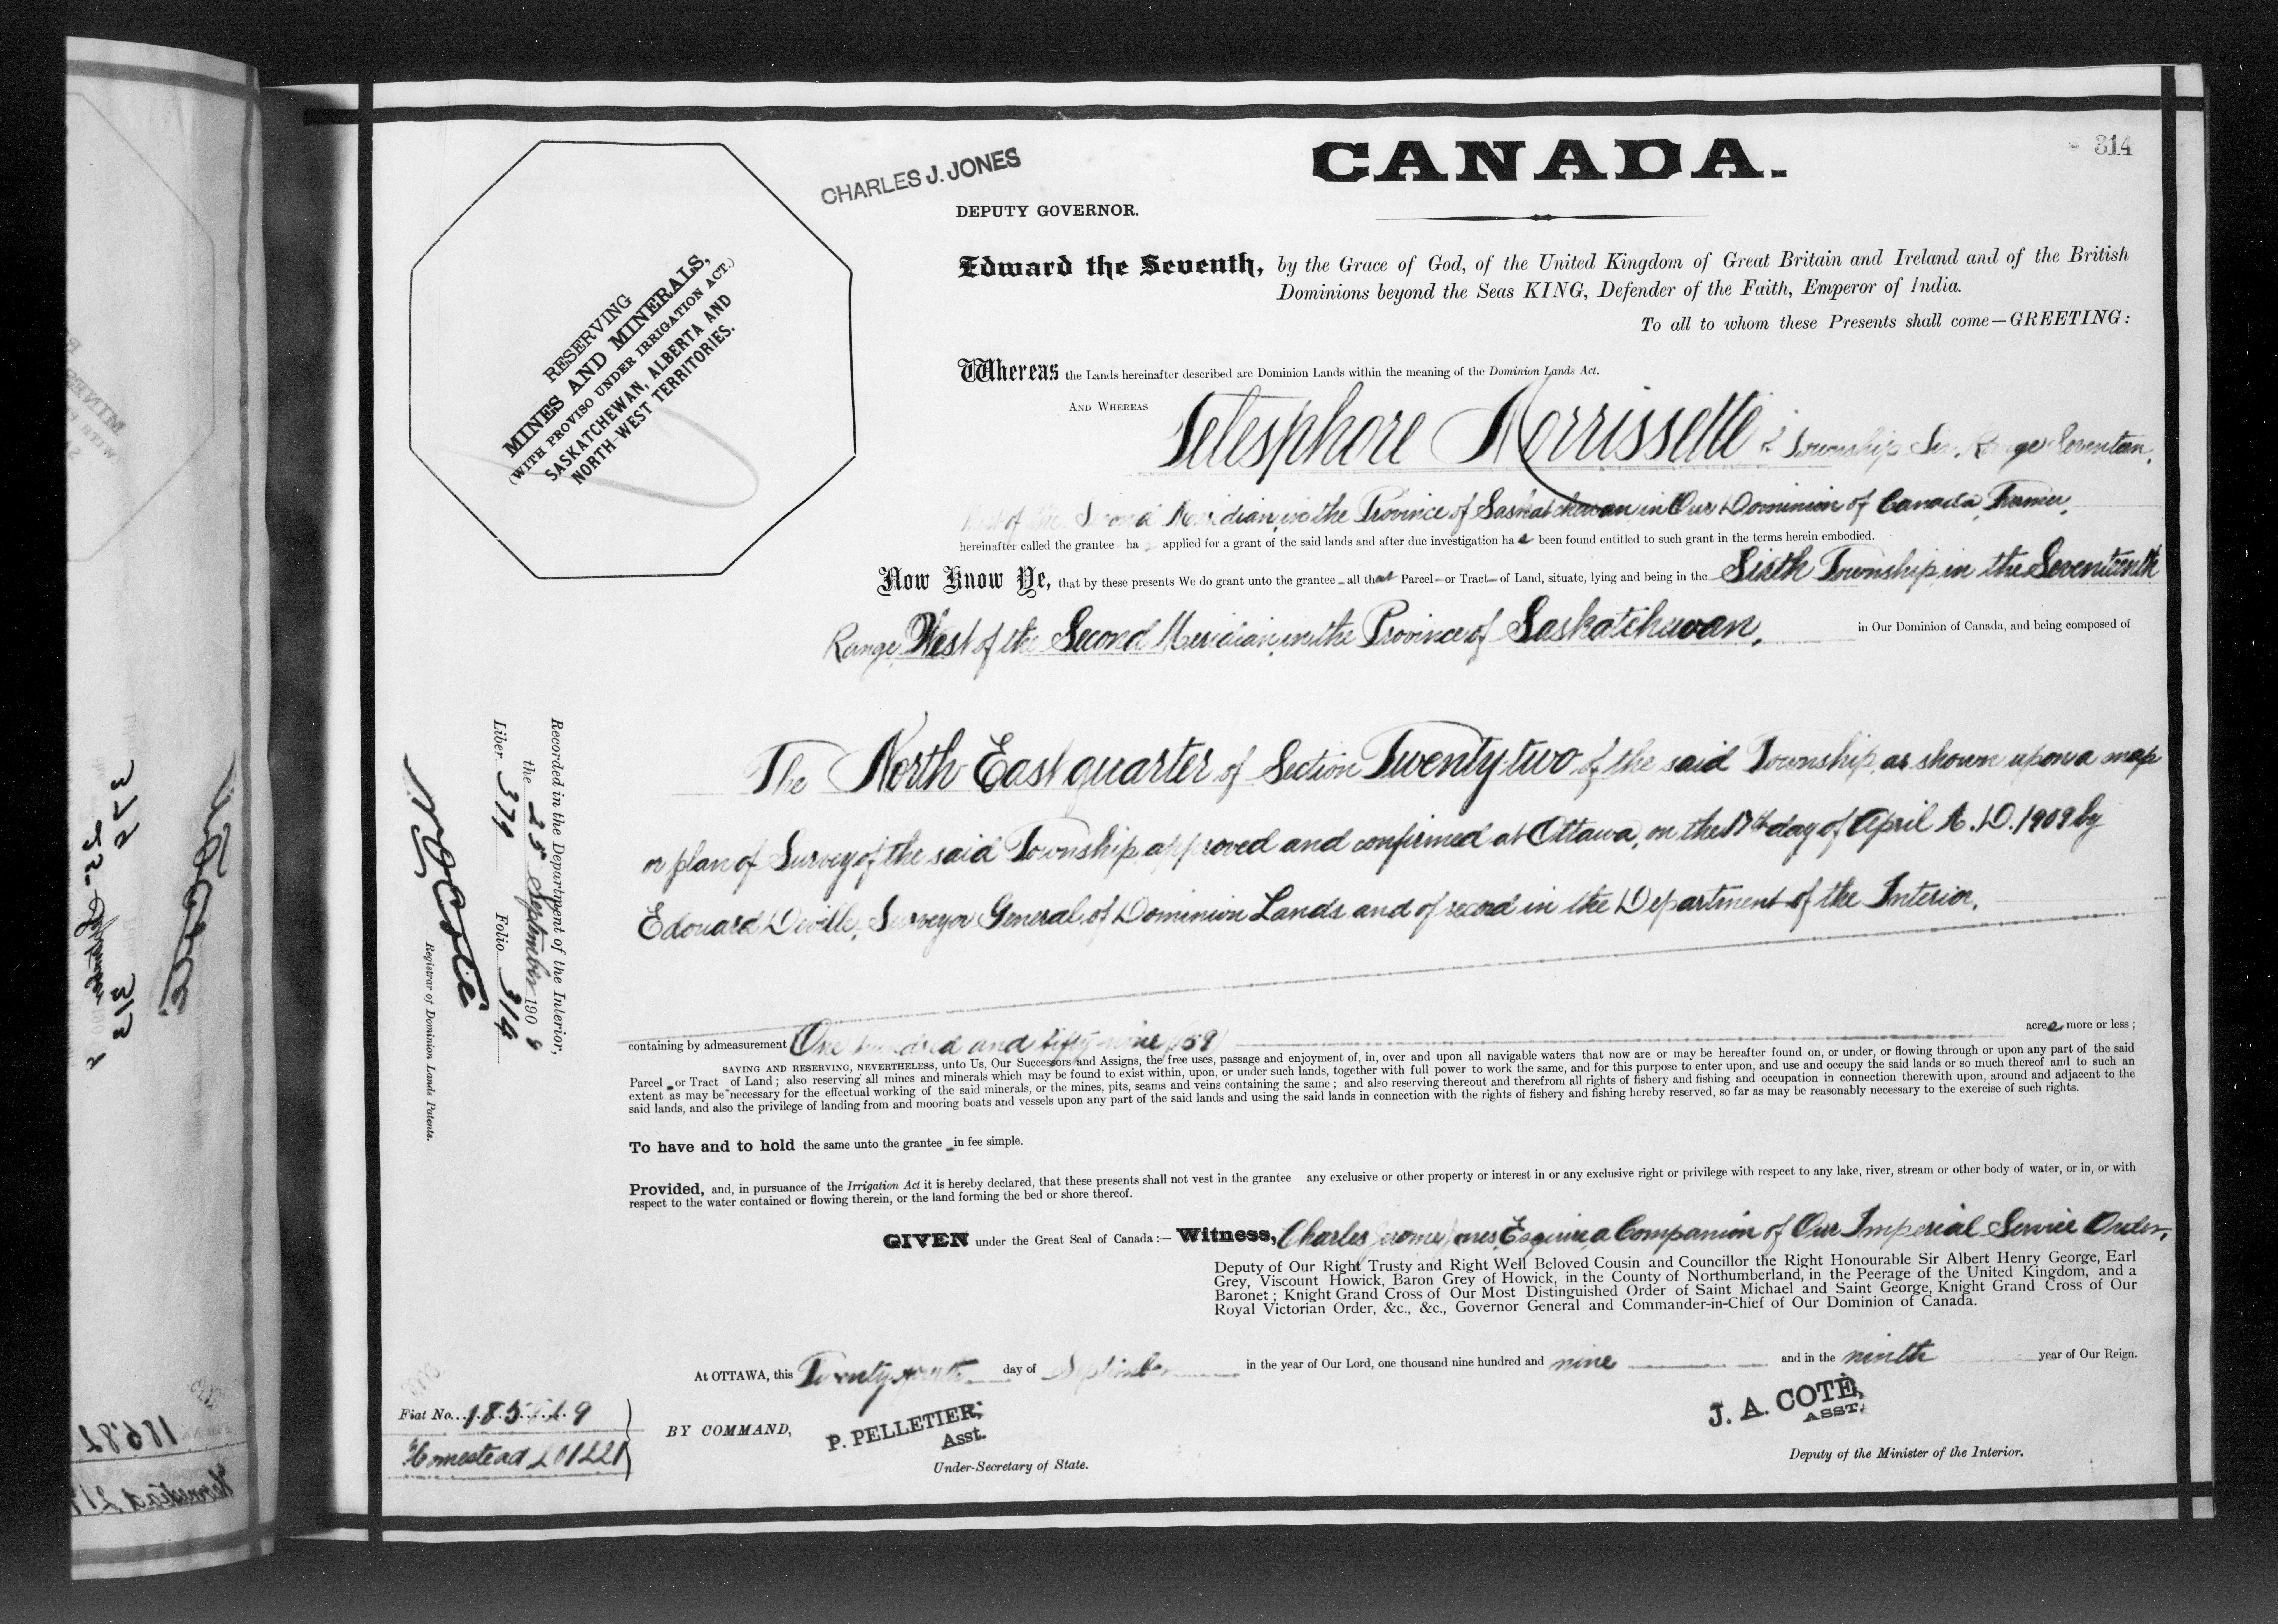 314
CANADA.
CHARLES J. JONES
DEPUTY GOVERNOR.
RESERVING
MINES AND MINERALS,
(WITH PROVISO UNDER IRRIGATION ACT.)
SASKATCHEWAN, ALBERTA AND
NORTH-WEST TERRITORIES.
Edward the Seventh, by the Grace of God, of the United Kingdom of Great Britain and Ireland and of the British
Dominions beyond the Seas KING, Defender of the Faith, Emperor of India.
To all to whom these Presents shall come—GREETING:
Whereas the Lands hereinafter described are Dominion Lands within the meaning of the Dominion Lands Act.
AND WHEREAS Telesphore Morrissette of Township Six, Range Seventeen,
West of the Second Meridian, in the Province of Saskatchewan in Our Dominion of Canada, Farmer,
hereinafter called the grantee ha s applied for a grant of the said lands and after due investigation ha s been found entitled to such grant in the terms herein embodied.
Now Know Ye, that by these presents We do grant unto the grantee – all that Parcel – or Tract – of Land, situate, lying and being in the Sixth Township, in the Seventeenth
Range, West of the Second Meridian, in the Province of Saskatchewan, in Our Dominion of Canada, and being composed of
The North East quarter of Section Twenty-two of the said Township, as shown upon a map
or plan of Survey of the said Township, approved and confirmed at Ottawa, on the 17th day of April A.D. 1909 by
Edouard Deville, Surveyor General of Dominion Lands and of record in the Department of the Interior.
containing by admeasurement One hundred and fifty-nine (159) acres, more or less ;
SAVING AND RESERVING, NEVERTHELESS, unto Us, Our Successors and Assigns, the free uses, passage and enjoyment of, in, over and upon all navigable waters that now are or may be hereafter found on, or under, or flowing through or upon any part of the said
Parcel – or Tract of Land ; also reserving all mines and minerals which may be found to exist within, upon, or under such lands, together with full power to work the same, and for this purpose to enter upon, and use and occupy the said lands or so much thereof and to such an
extent as may be necessary for the effectual working of the said minerals, or the mines, pits, seams and veins containing the same ; and also reserving thereout and therefrom all rights of fishery and fishing and occupation in connection therewith upon, around and adjacent to the
said lands, and also the privilege of landing from and mooring boats and vessels upon any part of the said lands and using the said lands in connection with the rights of fishery and fishing hereby reserved, so far as may be reasonably necessary to the exercise of such rights.
To have and to hold the same unto the grantee – in fee simple.
Provided, and, in pursuance of the Irrigation Act it is hereby declared, that these presents shall not vest in the grantee any exclusive or other property or interest in or any exclusive right or privilege with respect to any lake, river, stream or other body of water, or in, or with
respect to the water contained or flowing therein, or the land forming the bed or shore thereof.
GIVEN under the Great Seal of Canada :— Witness, Charles Jerome Jones, Esquire, a Companion of Our Imperial Service Order,
Deputy of Our Right Trusty and Right Well Beloved Cousin and Councillor the Right Honourable Sir Albert Henry George, Earl
Grey, Viscount Howick, Baron Grey of Howick, in the County of Northumberland, in the Peerage of the United Kingdom, and a
Baronet ; Knight Grand Cross of Our Most Distinguished Order of Saint Michael and Saint George, Knight Grand Cross of Our
Royal Victorian Order, &c., &c., Governor General and Commander-in-Chief of Our Dominion of Canada.
At OTTAWA, this Twenty day of September in the year of Our Lord, one thousand nine hundred and nine and in the ninth year of Our Reign.
BY COMMAND,
P. PELLETIER,
Asst.
Under-Secretary of State.
J. A. COTÉ,
ASST.
Deputy of the Minister of the Interior.
Recorded in the Department of the Interior,
the 25 September 1909
Liber 374 Folio 314
N O Coté
Registrar of Dominion Lands Patents.
Fiat No.
Homestead 201221